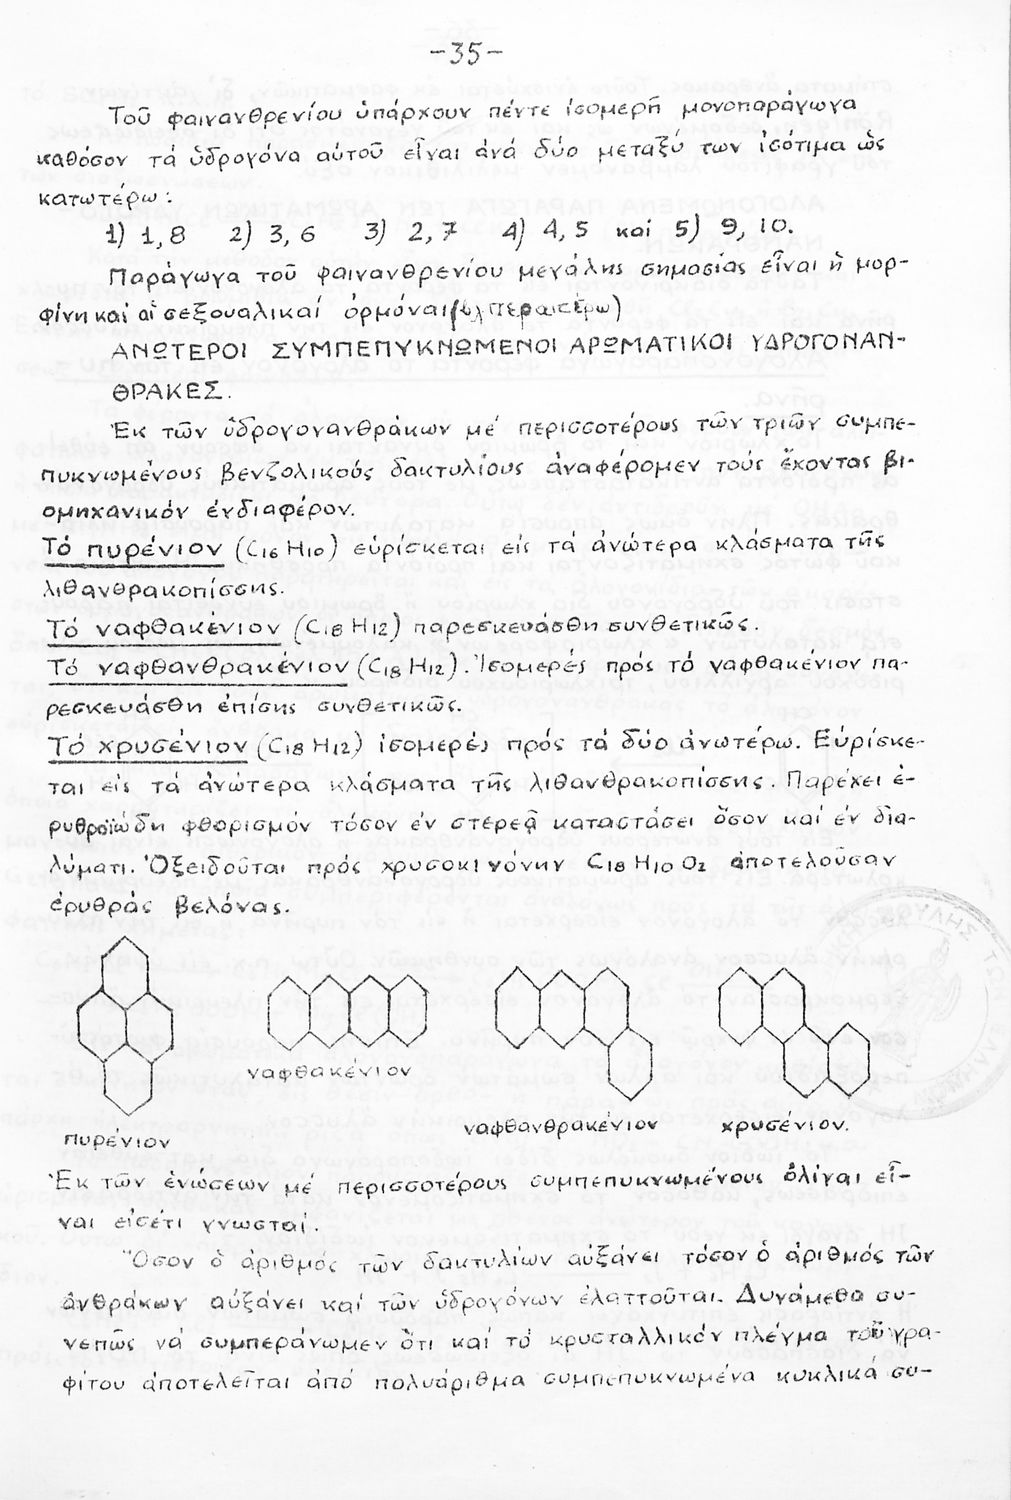 -35-
Τοῦ φαινανθρενίου ὑπάρχουν πέντε ἰσομερῆ μονοπαράγωγα
καθόσον τά ὑδρογόνα αὐτοῦ εἶναι ἀνά δύο μεταξύ των ἰσότιμα ὡς
κατωτέρω:
1) 1,8 2) 3,6 3) 2,7 4) 4,5 καί 5) 9, 10.
Παράγωγα τοῦ φαινανθρενίου μεγάλης σημασίας εἶναι ἡ μορ-
φίνη καί αἱ σεξουαλικαί ὁρμόναι (βλ περαιτέρω)
ΑΝΩΤΕΡΟΙ ΣΥΜΠΕΠΥΚΝΩΜΕΝΟΙ ΑΡΩΜΑΤΙΚΟΙ ΥΔΡΟΓΟΝΑΝ-
ΘΡΑΚΕΣ.
Ἐκ τῶν ὑδρογονανθράκων μέ περισσοτέρους τῶν τριῶν συμπε-
πυκνωμένους βενζολικούς δακτυλίους ἀναφέρομεν τούς ἔχοντας βι-
ομηχανικόν ἐνδιαφέρον.
Τό πυρένιον (C16 H10) εὑρίσκεται εἰς τά ἀνώτερα κλάσματα τῆς
λιθανθρακοπίσσης.
Τό ναφθακένιον (C18 H12) παρεσκευάσθη συνθετικῶς.
Τό ναφθανθρακένιον (C18 H12). Ἰσομερές πρός τό ναφθακένιον πα-
ρεσκευάσθη ἐπίσης συνθετικῶς.
Τό χρυσένιον (C18 H12) ἰσομερές πρός τά δύο ἀνωτέρω. Εὑρίσκε-
ται εἰς τά ἀνώτερα κλάσματα τῆς λιθανθρακοπίσσης. Παρέχει ἐ-
ρυθροϊώδη φθορισμόν τόσον ἐν στερεᾷ καταστάσει ὅσον καί ἐν δια-
λύματι. Ὀξειδοῦται πρός χρυσοκινόνην C18 H10 O2 ἀποτελοῦσαν
ἐρυθράς βελόνας.
ναφθακένιον
πυρένιον ναφθανθρακένιον χρυσένιον.
Ἐκ τῶν ἑνώσεων μέ περισσοτέρους συμπεπυκνωμένους ὀλίγαι εἶ-
ναι εἰσέτι γνωσταί.
Ὅσον ὁ ἀριθμός τῶν δακτυλίων αὐξάνει τόσον ὁ ἀριθμός τῶν
ἀνθράκων αὐξάνει καί τῶν ὑδρογόνων ἐλαττοῦται. Δυνάμεθα συ-
νεπῶς νά συμπεράνωμεν ὅτι καί τό κρυσταλλικόν πλέγμα τοῦ γρα-
φίτου ἀποτελεῖται ἀπό πολυάριθμα συμπεπυκνωμένα κυκλικά συ-